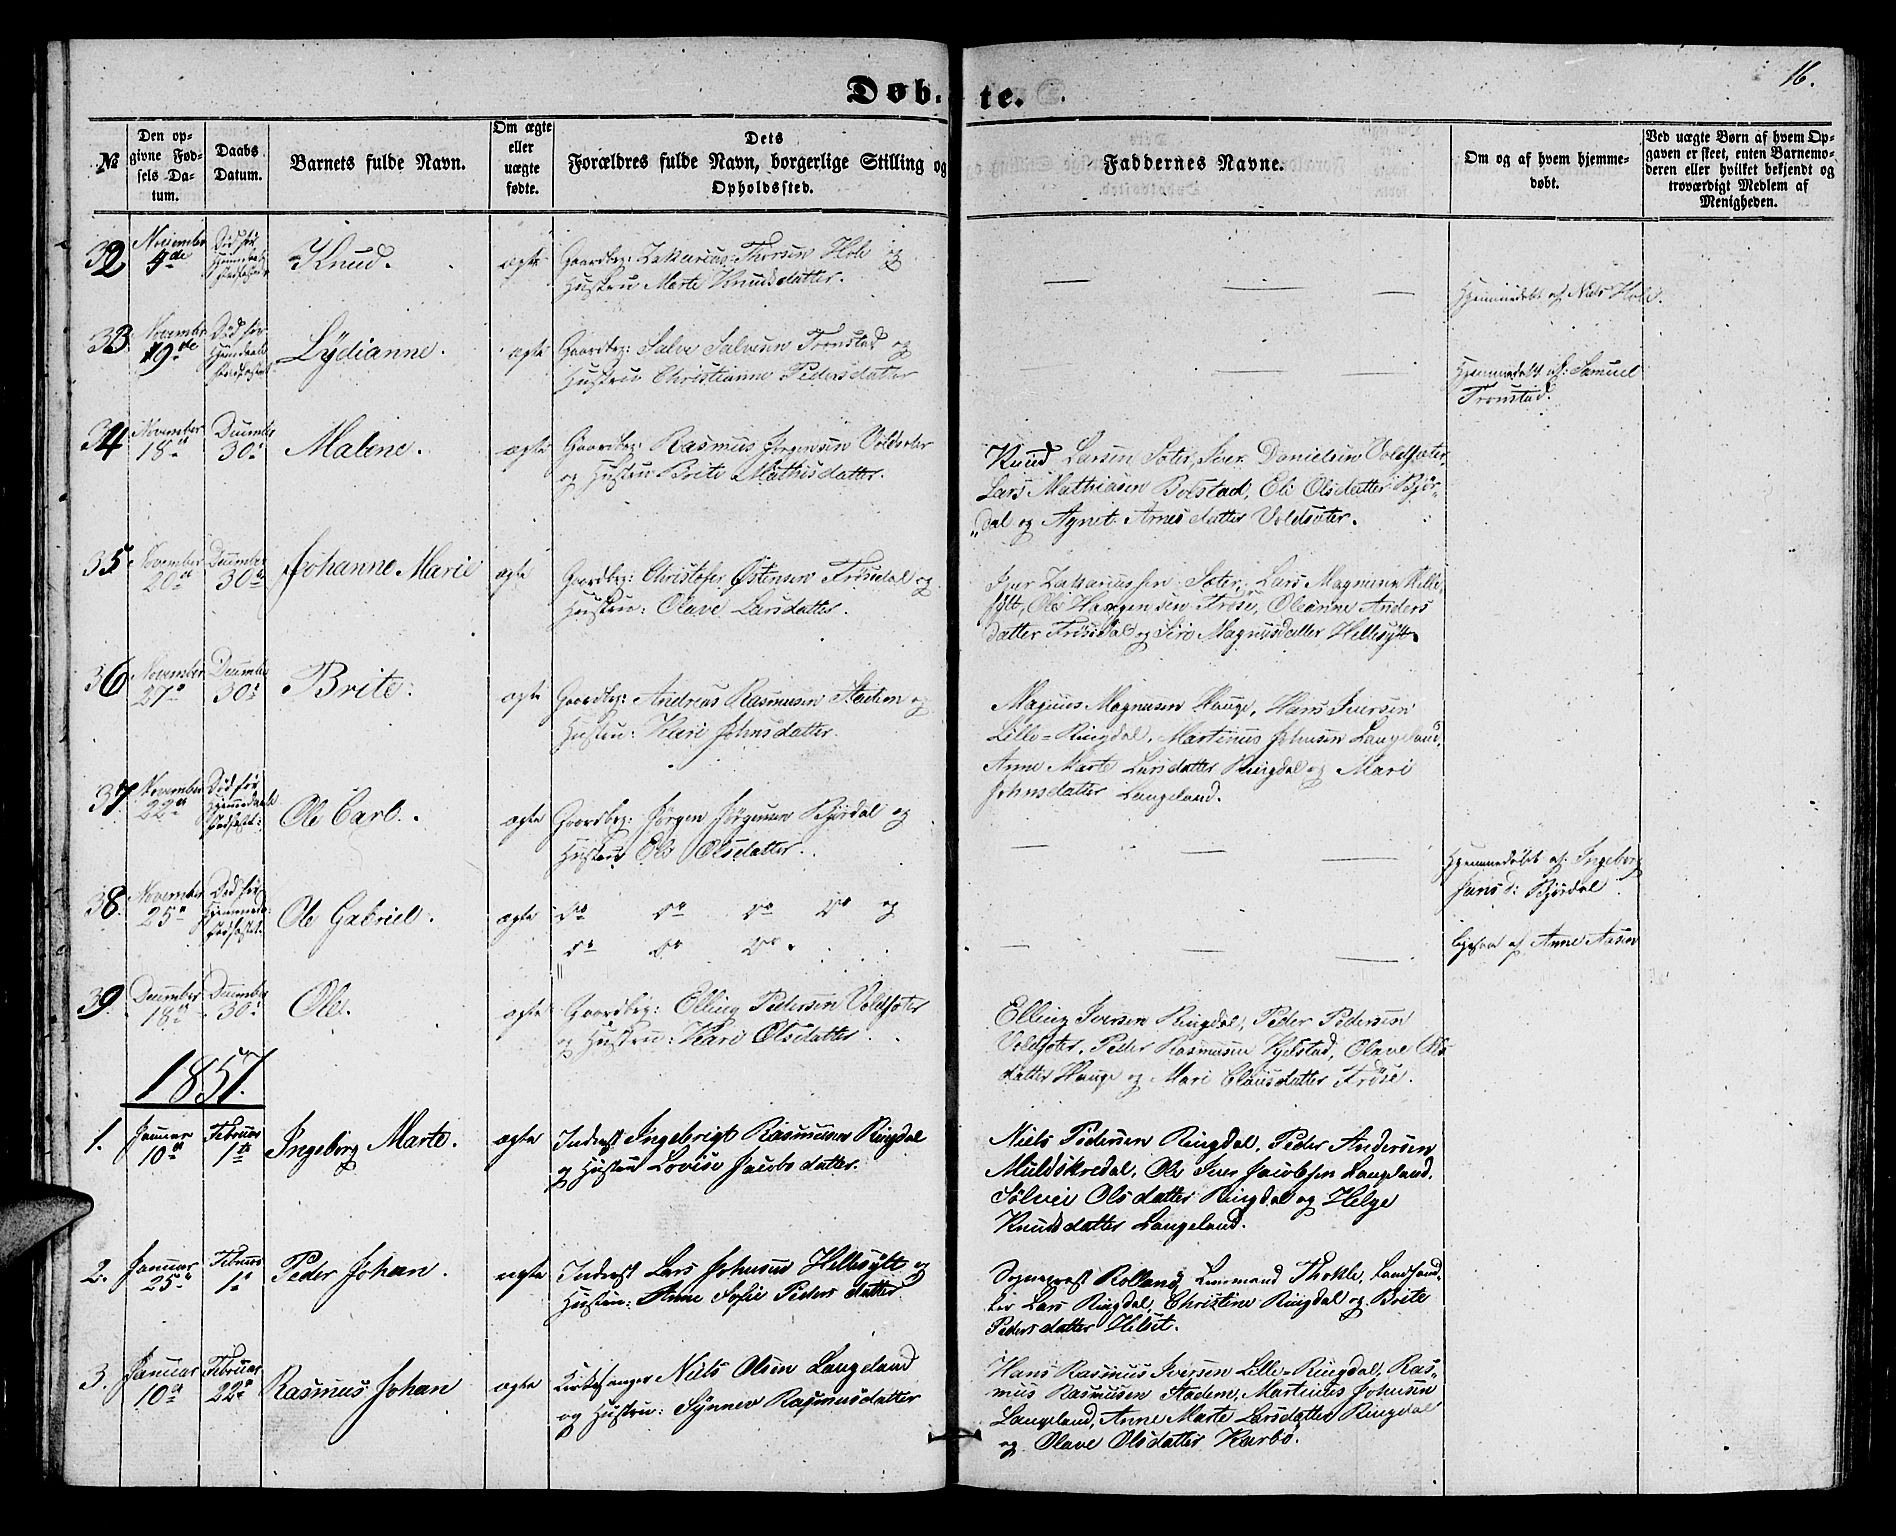 16.
Døb- te.
№
Den op-
givne Fød-
sels Da-
tum.
Daabs
Datum.
Barnets fulde Navn.
Om ægte
eller
uægte
fødte.
Dets
Forældres fulde Navn, borgerlige Stilling og
Opholdssted.
Faddernes Navne.
Om og af hvem hjemme-
døbt.
Ved uægte Børn af hvem Op-
gaven er skeet, enten Barnemo-
deren eller hvilket bekjendt og
troværdigt Medlem af
Menigheden.
32 November Død før
9de Knud. ægte Gaardbr: Zakarias Thorsen Hole og
Hustru Marte Knudsdatter.
Hjemmedøbt af Niels Hole.
33 November Død før
19de Lydianne. ægte Gaardbr: Salve Salvesen Tronstad og
Hustru Christianne Pedersdatter
Hjemmedøbt af: Samuel
Tronstad.
34 November December
18de 30te Malene. ægte Gaardbr: Rasmus Jørgensen Voldsæter
og Hustru Brite Mathisdatter.
Knud Larsen Sæter, Iver Danielsen Voldsæter,
Lars Mathiasen Bolstad, Eli Olsdatter Bjør-
dal og Agnet Arnesdatter Voldsæter.
35 November December
20de 30te Johanne Marie ægte Gaardbr: Christofer Østensen Frøisdal og
Hustru: Olave Larsdatter.
Iver Zakariassen Sæter, Lars Magnusen Helle-
sylt, Ole Haagensen Frøise, Oleanne Anders
datter Frøisdal og Siro Magnusdatter Hellesylt.
36 November December
27de 30te Brite. ægte Gaardbr: Andreas Rasmusen Stadem og
Hustru: Kari Johnsdatter.
Magnus Magnusen Hauge, Hans Iversen
Lille-Ringdal, Martinus Johnsen Langeland,
Anne Marte Larsdatter Ringdal og Mari
Johnsdatter Langeland.
37 November Død før
22de Hjemmedaab
Ole Carl. ægte Gaardbr: Jørgen Jørgensen Bjørdal og
Hustru Eli Olsdatter.
Hjemmedøbt af: Ingeborg
Jensd: Bjørdal.
38. November Død før
25de Ole Gabriel. ægte do do do do og
do do do.
ligesaa af Anne Aasen
39. December December
18de 30te Ole. ægte Gaardbr: Elling Pedersen Voldsæter
og Hustru: Kari Olsdatter.
Elling Iversen Ringdal, Peder Pedersen
Voldsæter, Peder Rasmusen Kjelstad, Olave Ols
datter Hauge og Mari Clausdatter Frøise.
1857.
1. Januar Februar
10de 1ste Ingeborg Marte. ægte Inderst Ingebrigt Rasmussen Ringdal
og Hustru Lovise Jacobsdatter.
Niels Pedersen Ringdal, Peder Andersen
Muldskredal, Ole Iver Jacobsen Langeland,
Sølvei Olsdatter Ringdal og Helge
Knudsdatter Langeland.
2. Januar Februar
25de 1te Peder Johan. ægte Inderst Lars Johnsen Hellesylt og
Hustru: Anne Sofie Pedersdatter.
Sogneprest Rolland, Lensmand Thokle, Landhand-
ler Lars Ringdal, Christine Ringdal og Brite
Pedersdatter Helset.
3. Januar Februar
10de 22de Rasmus Johan ægte Kirkesanger Niels Olsen Langeland
og Hustru: Synnev Rasmusdatter
Hans Rasmus Iversen Lille-Ringdal, Ras-
mus Rasmusen Stadem, Martinus Johnsen
Langeland, Anne Marte Larsdatter Ringdal
og Olave Olsdatter Karbø.